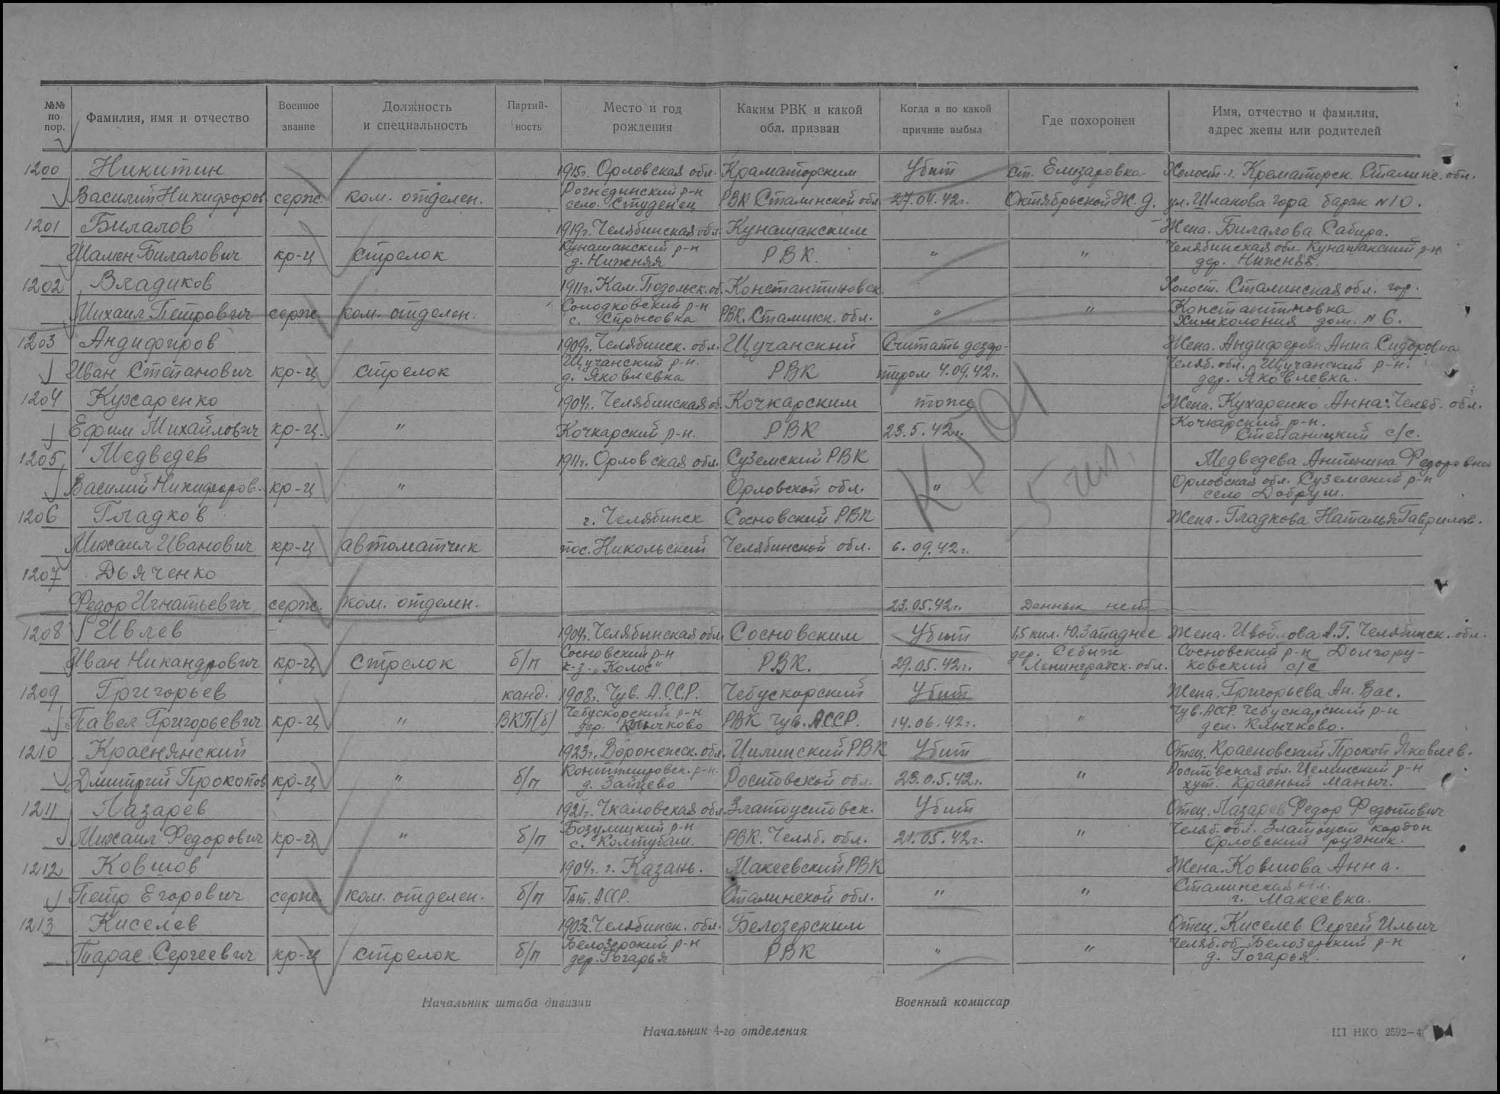 №№ по пор. Фамилия, имя и отчество Военное звание Должность и специальность Партийность Место и год рождения Каким РВК и какой обл. призван Когда и по какой причине выбыл Где похоронен Имя, отчество и фамилия, адрес жены или родителей
1200 Никитин 1915г. Орловская обл. Краматорским Убит ст. Елизаровка Холост. г. Краматорск. Сталинс. обл.
Василий Никифоров серж. ком. отделен. Рогнединский р-н село Студенец РВК Сталинской обл. 27.04.42г. Октябрьской Ж.Д. ул. Шлакова гора барак N10.
1201 Билалов 1919г. Челябинская обл. Кунашакским Жена. Билалова Сабира.
Шамен Билалович кр-ц стрелок Кунашакский р-н д. Нижняя РВК. " " Челябинская обл. Кунашакский р-н дер. Нижняя.
1202 Владиков 1911г. Кам. Подольск. об. Константиновск. Холост. Сталинская обл. гор.
Михаил Петрович серж. ком. отделен. Солодковский р-н с. РВК. Сталинск. обл. " " Константиновка Химколония дом. N 6.
1203 Андифоров 1909г. Челябинск. обл. Щучанский Считать дезер- Жена. Андифорова Анна Сидоровна
Иван Степанович кр-ц стрелок Щучанский р-н. д. Яковлевка РВК тиром 4.09.42г. Челяб. обл. Щучанский р-н. дер. Яковлевка.
1204 Кухаренко 1904г. Челябинская об. Кочкарским тоже Жена. Кухаренко Анна. Челяб. обл.
Ефим Михайлович кр-ц. " Кочкарский р-н. РВК 23.5.42г. Кочкарский р-н. с/с.
1205 Медведев 1911г. Орловская обл. Суземский РВК Медведева Антонина Федоровна
Василий Никифоров. кр-ц " Орловской обл. " Орловская обл. Суземский р-н село Добрун.
1206 Гладков г. Челябинск Сосновский РВК Жена. Гладкова Наталья Гаврилов.
Михаил Иванович кр-ц автоматчик пос. Никольский Челябинской обл. 6.09.42г.
1207 Дьяченко
Федор Игнатьевич серж. ком. отделен. 23.05.42г. Данных нет
1208 Ивлев 1904г. Челябинская обл. Сосновским Убит 1,5 кил. Ю. Западнее Жена. А.Г. Челябинск. обл.
Иван Никандрович кр-ц стрелок б/п Сосновский р-н к-з "Колос" РВК. 29.05.42г. дер. Ленинградск. обл. Сосновский р-н Долгору- ковский с/с
1209 Григорьев канд. 1908г. Чув. А.С.С.Р. Чебускарский Убит Жена. Григорьева Ан. Вас.
Павел Григорьевич кр-ц " ВКП/б/ Чебускарский р-н дер. Клычково РВК Чув. АССР. 14.06.42г. " Чув. АССР Чебускарский р-н дел. Клычково.
1210 Краснянский 1923г. Воронежск. обл. Цилинский РВК Убит Отец. Прокоп Яковлев.
Дмитрий Прокопов кр-ц " б/п р-н. д. Зайцево Ростовской обл. 23.0.5.42г. " Ростовская обл. Целинский р-н хут. Красный Маныч.
1211 Лазарев 1921г. Чкаловская обл. Златоустовск. Убит Отец. Лазарев Федор Федотович
Михаил Федорович кр-ц " б/п Бозулицкий р-н с. Колтубан. РВК. Челяб. обл. 21.05.42г. " Челяб. обл. Златоуст кордон Орловский рудник.
1212 Ковшов 1904г. г. Казань. Макеевский РВК Жена. Ковшова Анна.
Петр Егорович серж. ком. отделен. б/п Тат. АССР. Сталинской обл. " " Сталинская обл. г. Макеевка.
1213 Киселев 1903г. Челябинск. обл. Белозерским Отец. Киселев Сергей Ильич
Тарас Сергеевич кр-ц стрелок б/п Белозерский р-н дер. Гогарья РВК " " Челяб. об. Белозерский р-н д. Гогарья.
5 чел.
Начальник штаба дивизии Военный комиссар
Начальник 4-го отделения
ЦТ НКО 2592—4